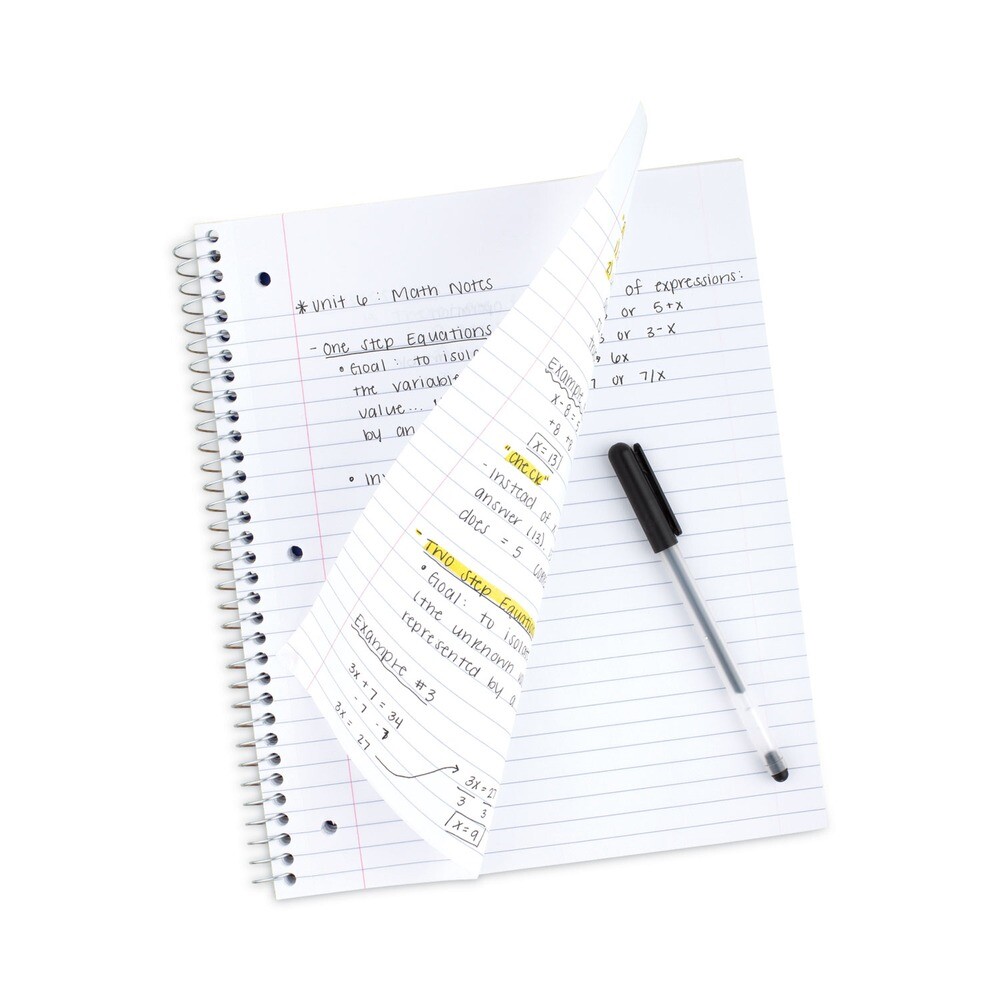 * Unit 6: Math Notes
- One step Equations
• Goal: to
the
value...
by an
•
of expressions:
or 5+x
or 3-x
6x
or 7/x
Example
x-8=
+8
x=13
"check"
- Instead of
answer (13)
does = 5
- Two Step
• Goal: to
(the unknown
represented by a
Example #3
3x+7=34
-7 -7
3x = 27
3x=
3 3
x=9